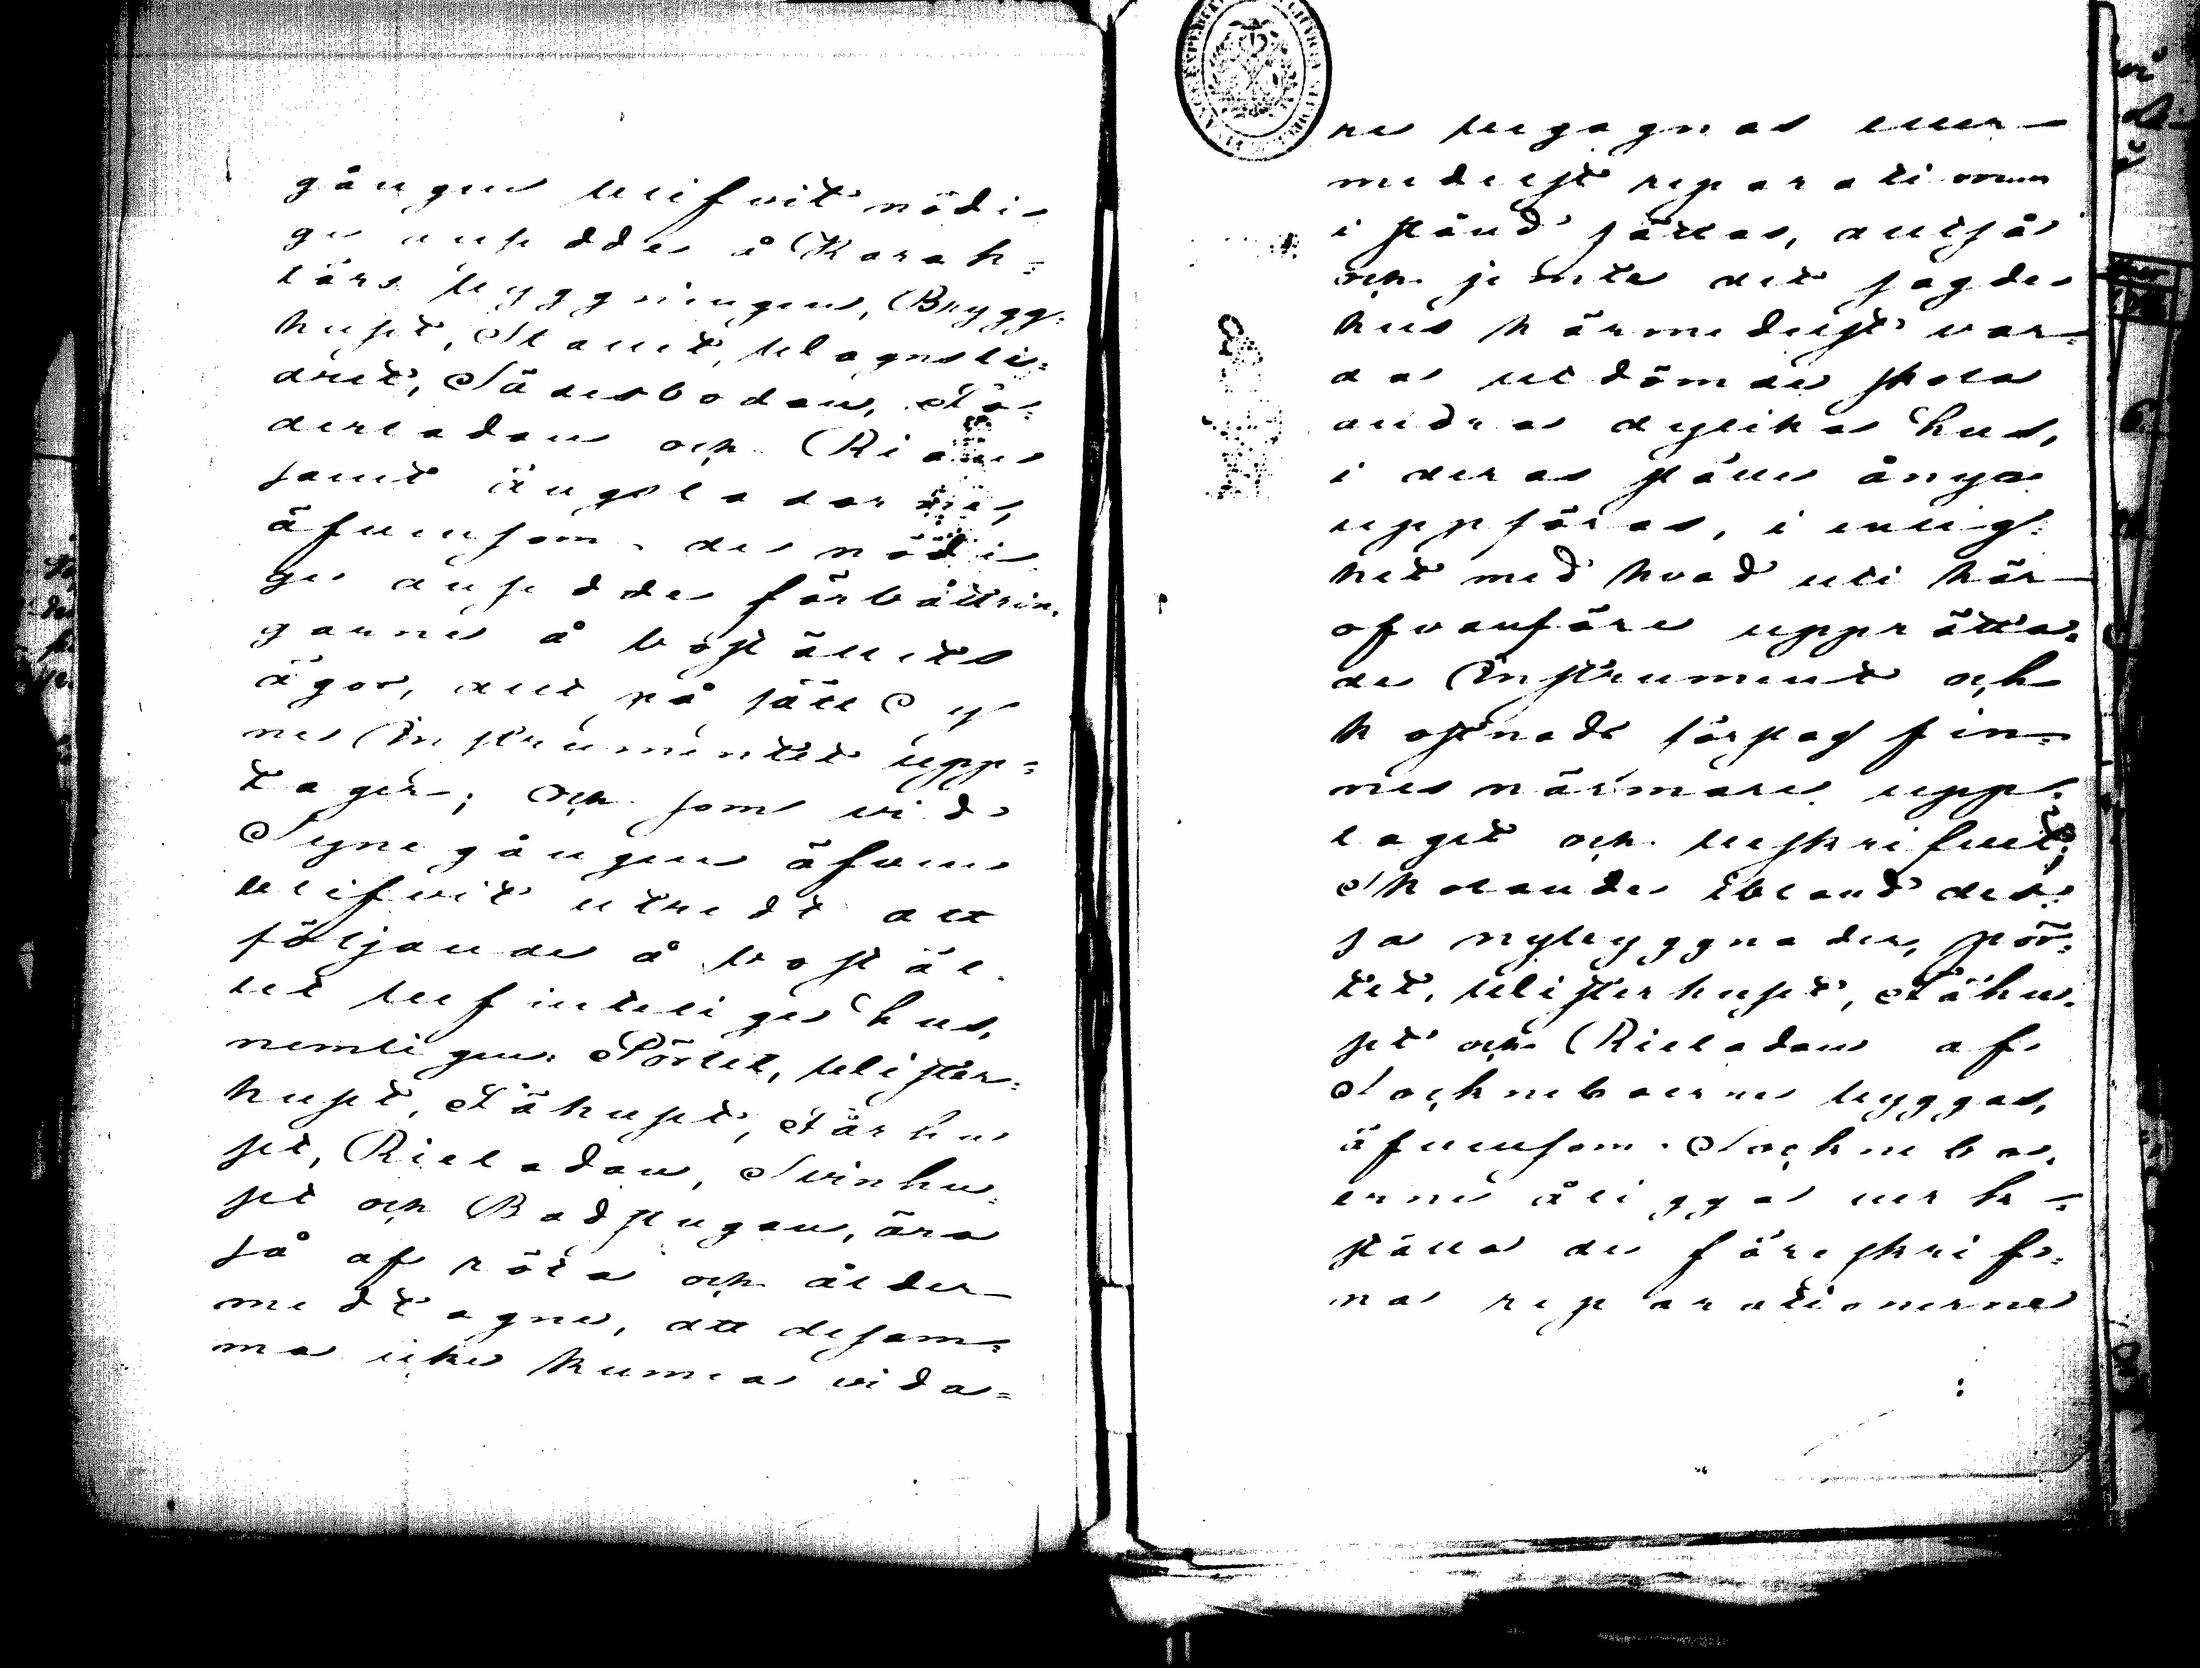 gången blifvit nödi-
ge ansedde å Karak=
lärs byggningen, Brygg=
huset, Stallet, Vagnsli=
dret, Sädesboden, Fo=
derladan och Rian
samt ängsladorne,
äfvensom de nödi
ge ansedde förbättrin.
garne å boställets
ägor, allt på sätt Sy
ne Instrumentet upp=
tager; Och som vid
Synegången äfven
blifvit utredt att
följande å bostäl.
let befinteliga hus,
nemligen Pörtet, Visthus=
huset, Fähuset, Fårhu
set, Rieladan, Svinhu=
set och Badstugan, äro
så af röta och ålder
medtagne, att desam=
ma icke kunna vida=
re begagnas eller
medelst reparationer
i stånd sättas, alltså
och jemte det sagde
hus härmedelst var=
da utdömde skola
andra dylika hus,
i deras ställe ånyo
uppföras, i enlig=
het med hvad uti här
ofvanföre upprätta=
de Instrument och
kostnads förslag fin=
nes närmare upp=
taget och beskrifvet;
Skolande ibland des=
sa nybyggnader, pör=
tet, Visterhuset, Fähu=
set och Rieladan af
Sockneboerne byggas,
äfvensom Socknebo=
erne åligga verk=
ställa de föreskrif=
na reparationerne